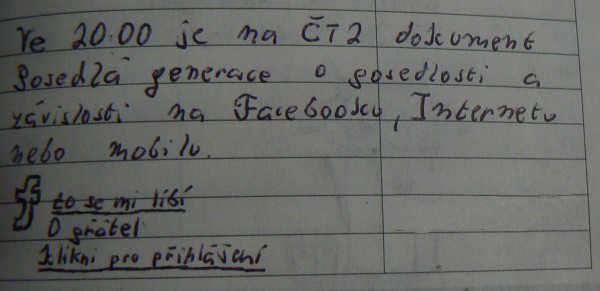 Ve 20:00 je na ČT2 dokument
Posedlá generace o posedlosti a
závislosti na Facebooku, Internetu
nebo mobilu.
f to se mi líbí
0 přátel
klikni pro přihlášení